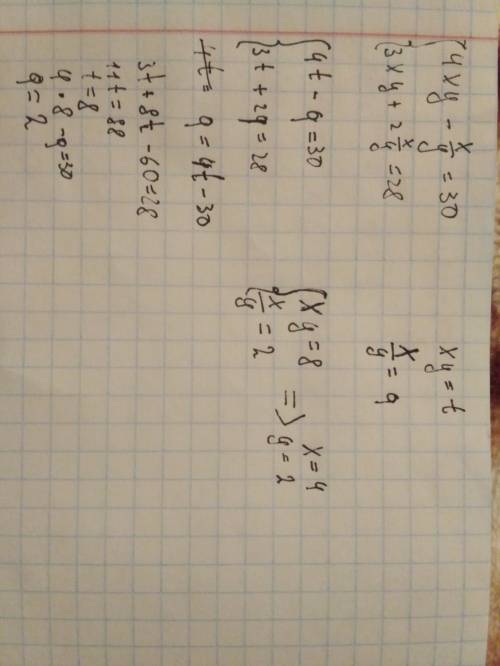 4xy - x/y = 30
3xy + 2 x/y = 28
xy = t
x/y = q
4t - q = 30
3t + 2q = 28
4t = q = 4t - 30
3t + 8t - 60 = 28
11t = 88
t = 8
4 · 8 - q = 30
q = 2
xy = 8
x/y = 2
=> x = 4
y = 2